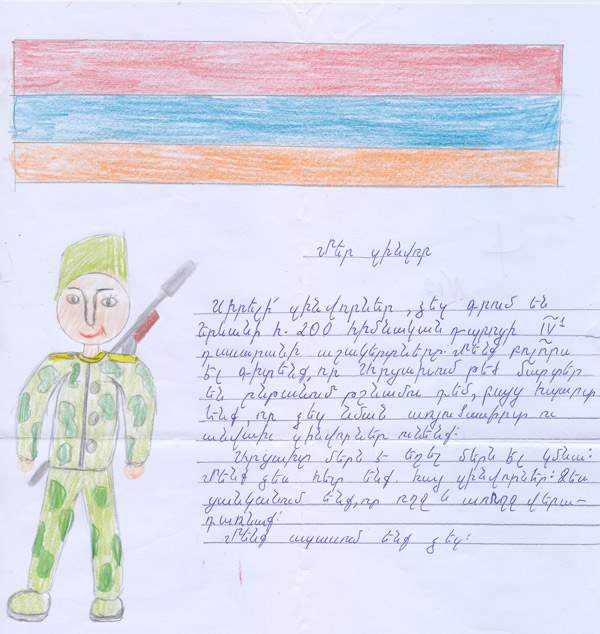 Մեր զինվոր
Սիրելի՛ զինվորներ, ձեզ գրում են
Երևանի հ. 200 հիմնական դպրոցի IV¹
դասարանի աշակերտները։ Մենք բոլորս
էլ գիտենք, որ Արցախում թեժ մարտեր
են ընթանում թշնամու դեմ, բայց հպարտ
ենք, որ ձեզ նման առյուծասիրտ ու
անվախ զինվորներ ունենք։
Արցախը մերն է եղել մերն էլ կմնա։
Մենք ձեր հետ ենք. հայ զինվորներ։ Ձեզ
ցանկանում ենք, որ ողջ և առողջ վերա-
դառնաք։
Մենք սպասում ենք ձեզ։